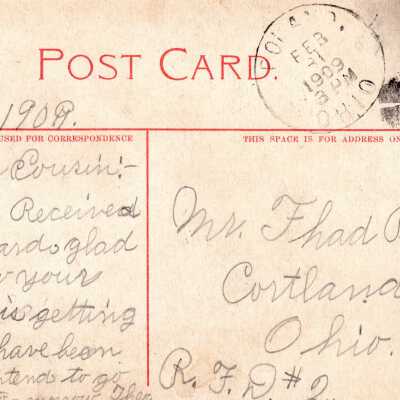 POST CARD.
POLAND,
FEB
1909
3 PM
OHIO
1909.
USED FOR CORRESPONDENCE
THIS SPACE IS FOR ADDRESS ON
Cousin:-
Received
ard glad
your
is getting
have been
ntend to go
Then
Mr. Thad
Cortland
Ohio.
R. F. D. #2